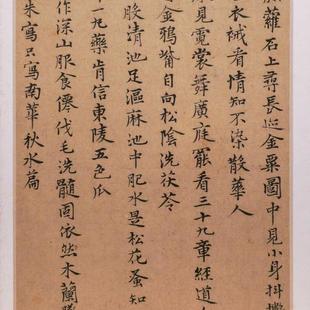 蘿石上尋長金粟圖中見小身抖擻
衣裓看情知不染散華人
見霓裳舞廣庭罷看三十九章經道人
金鴉觜自向松陰洗茯苓
清池足漚麻池中肥水是松花蚤知
一丸藥肯信東陵五色瓜
作深山服食僊伐毛洗髓固依然木蘭
寫只寫南華秋水篇